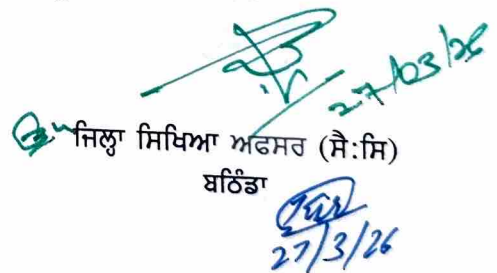 27/03/26
ਜਿਲ੍ਹਾ ਸਿਖਿਆ ਅਫਸਰ (ਸੈ:ਸਿ)
ਬਠਿੰਡਾ
27/3/26